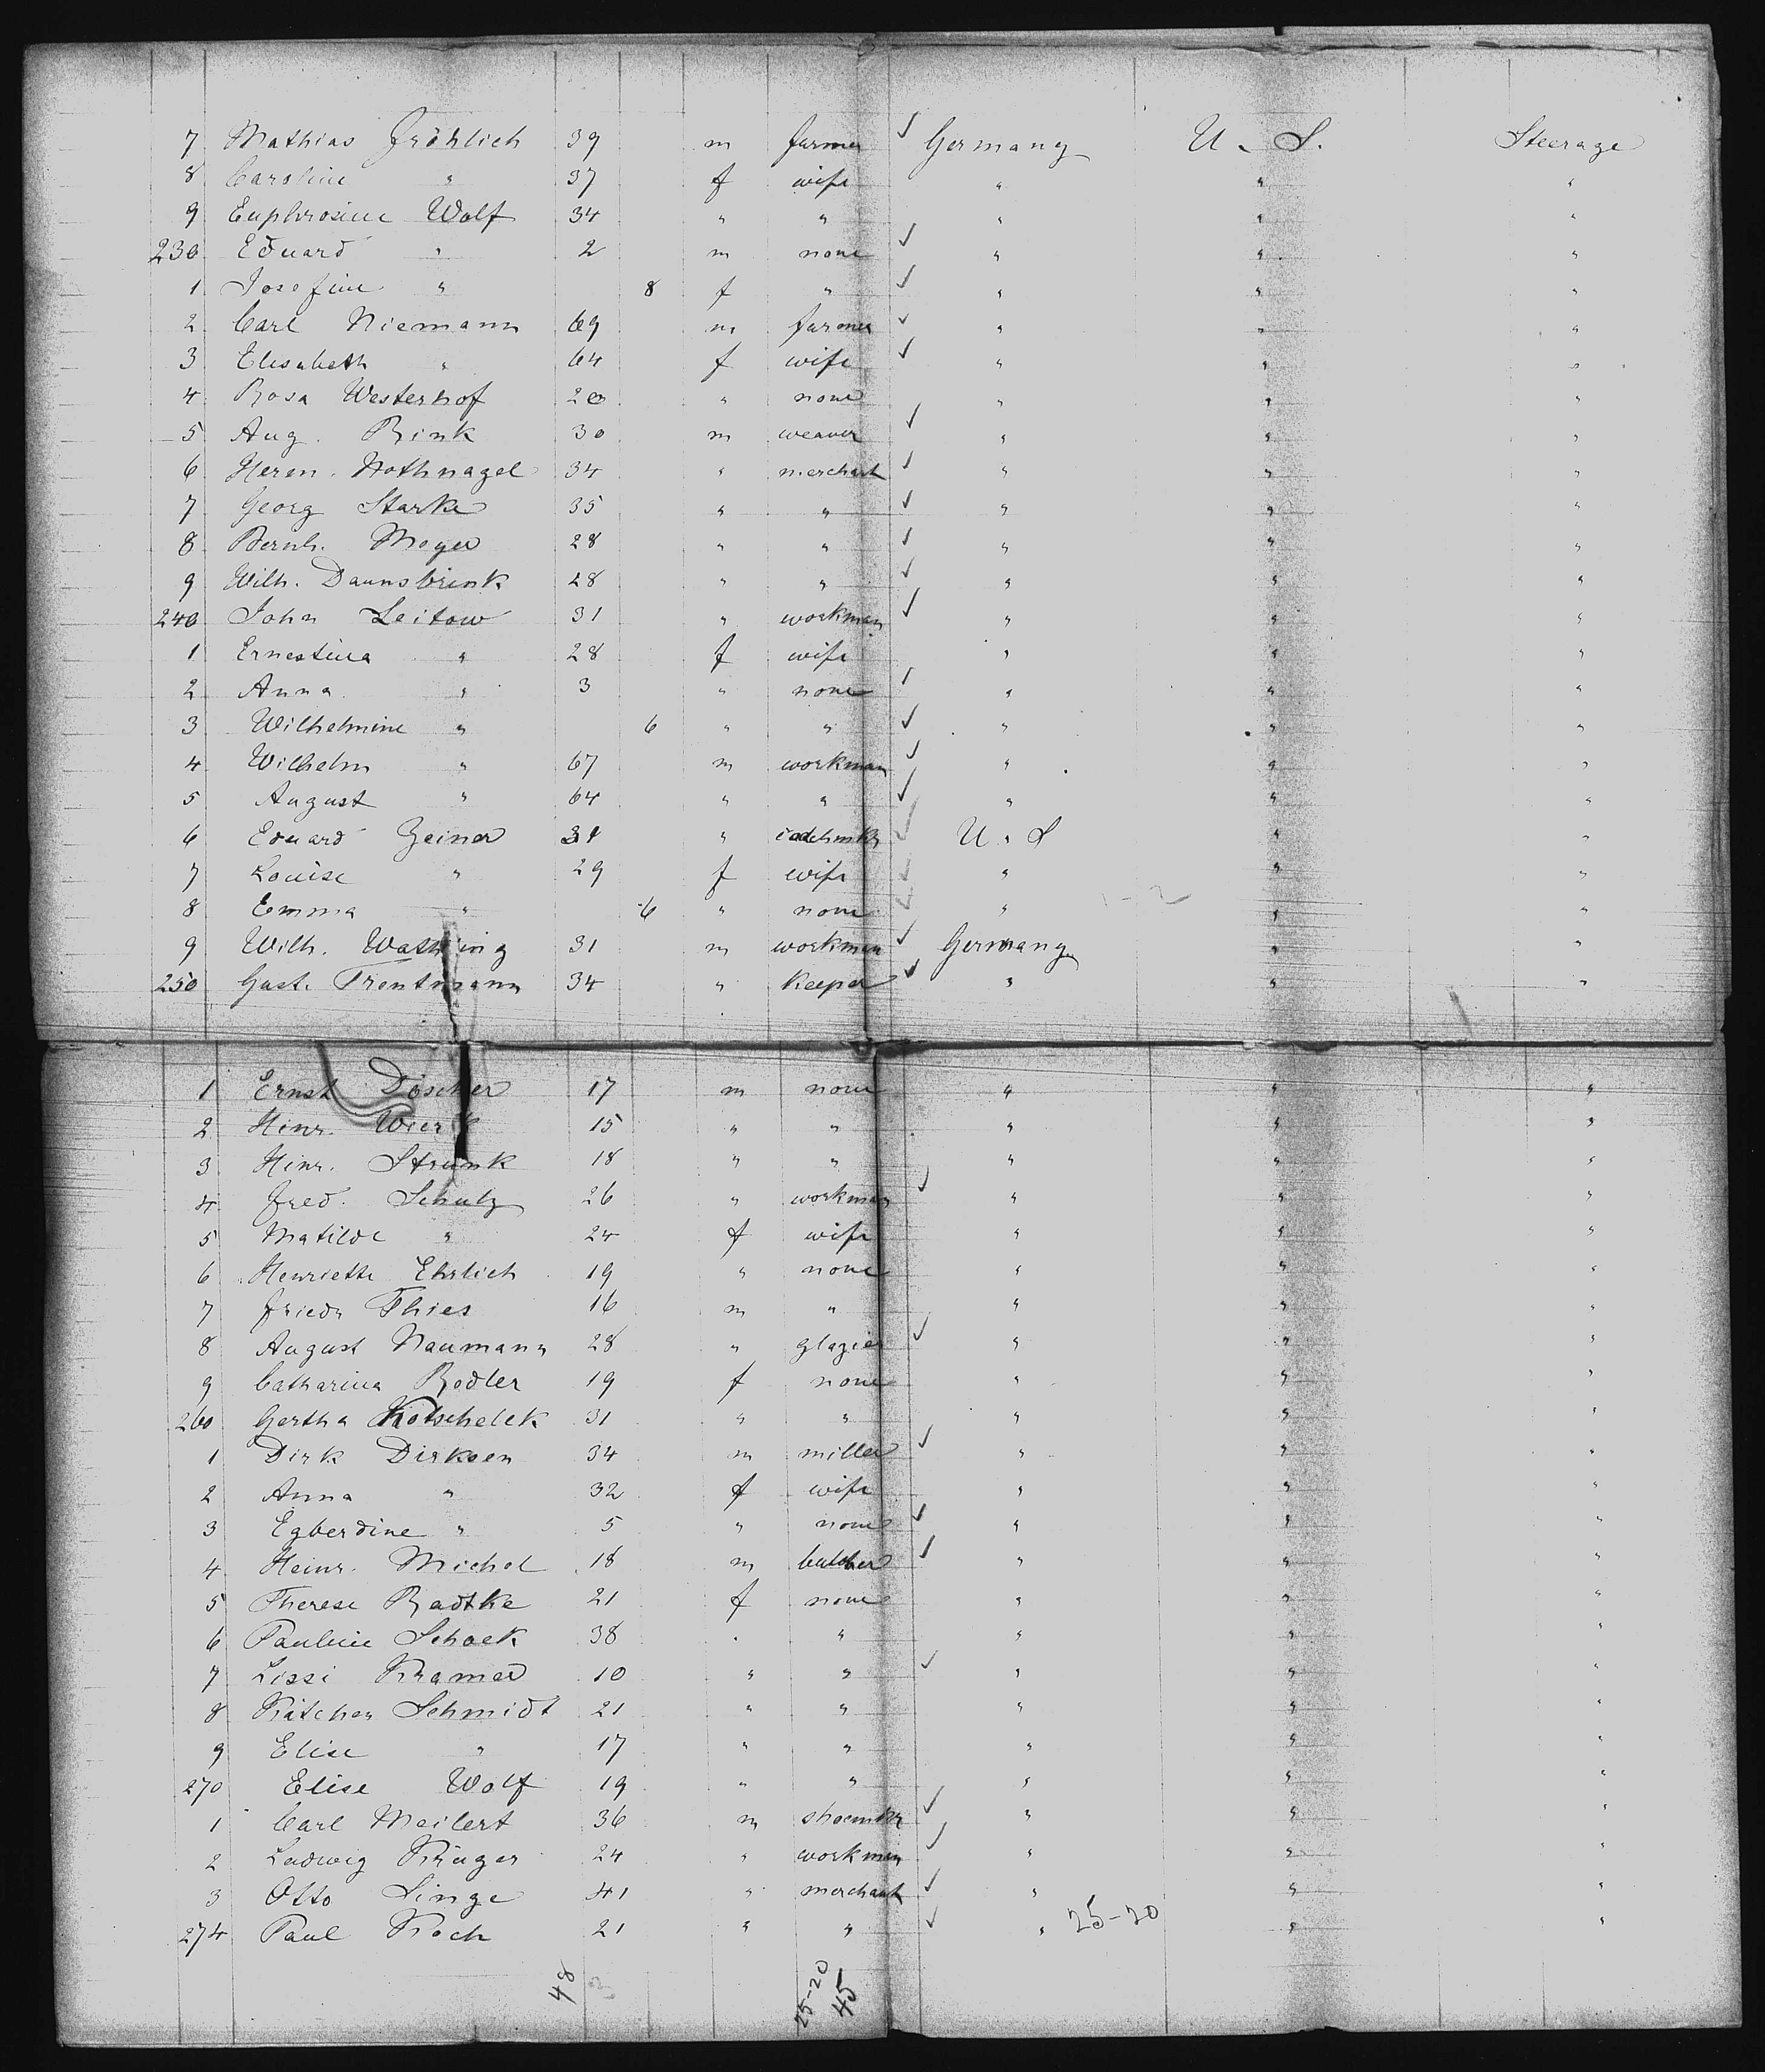 7 Mathias Fröhlich 39 m farmer ✓ Germany U. S. Steerage
8 Caroline " 37 f wife " " "
9 Euphrosine Wolf 34 " " " " "
230 Eduard " 2 m none ✓ " " "
1 Josefine " 8 f " ✓ " " "
2 Carl Niemann 69 m farmer ✓ " " "
3 Elisabeth " 64 f wife ✓ " " "
4 Rosa Westerhof 20 " none " " "
5 Aug. Rink 30 m weaver ✓ " " "
6 Herm. Nothnagel 34 " merchant ✓ " " "
7 Georg Starke 35 " " ✓ " " "
8 Bernh. Meyer 28 " " ✓ " " "
9 Wilh. Daunsbrink 28 " " ✓ " " "
240 John Leitow 31 " workman ✓ " " "
1 Ernestina " 28 f wife " " "
2 Anna " 3 " none ✓ " " "
3 Wilhelmine " 6 " " ✓ " " "
4 Wilhelm " 67 m workman ✓ " " "
5 August " 64 " " ✓ " " "
6 Eduard Zeiner 31 " ✓ U. S " "
7 Louise " 29 f wife ✓ " " "
8 Emma " 6 " none ✓ " 1-2 " "
9 Wilh. 31 m workman ✓ Germany " "
250 Gust. Trentmann 34 " keeper ✓ " " "
1 Ernst Döscher 17 m none " " "
2 Hinr. 15 " " " " "
3 Hinr. Strunk 18 " " " " "
4 Fred. Schulz 26 " workman ✓ " " "
5 Matilde " 24 f wife " " "
6 Henriette Ehrlich 19 " none " " "
7 Friedr Thies 16 m " " " "
8 August Naumann 28 " glazier ✓ " " "
9 Catharina Rodler 19 f none " " "
260 Gertha Kotschelek 31 " " " " "
1 Dirk Dirksen 34 m miller ✓ " " "
2 Anna " 32 f wife " " "
3 Egberdine " 5 " none ✓ " " "
4 Heinr. Michel 18 m butcher ✓ " " "
5 Therese Radtke 21 f none " " "
6 Pauline Schock 38 " " " " "
7 Lissi Kramer 10 " " ✓ " " "
8 Kätchen Schmidt 21 " " " " "
9 Elise " 17 " " " " "
270 Elise Wolf 19 " " " " "
1 Carl Meilert 36 m shoemkr ✓ " " "
2 Ludwig Krüger 24 " workman ✓ " " "
3 Otto Linge 41 " merchant ✓ " " "
274 Paul Koch 21 " " ✓ " 25-20 " "
48 25-20
45